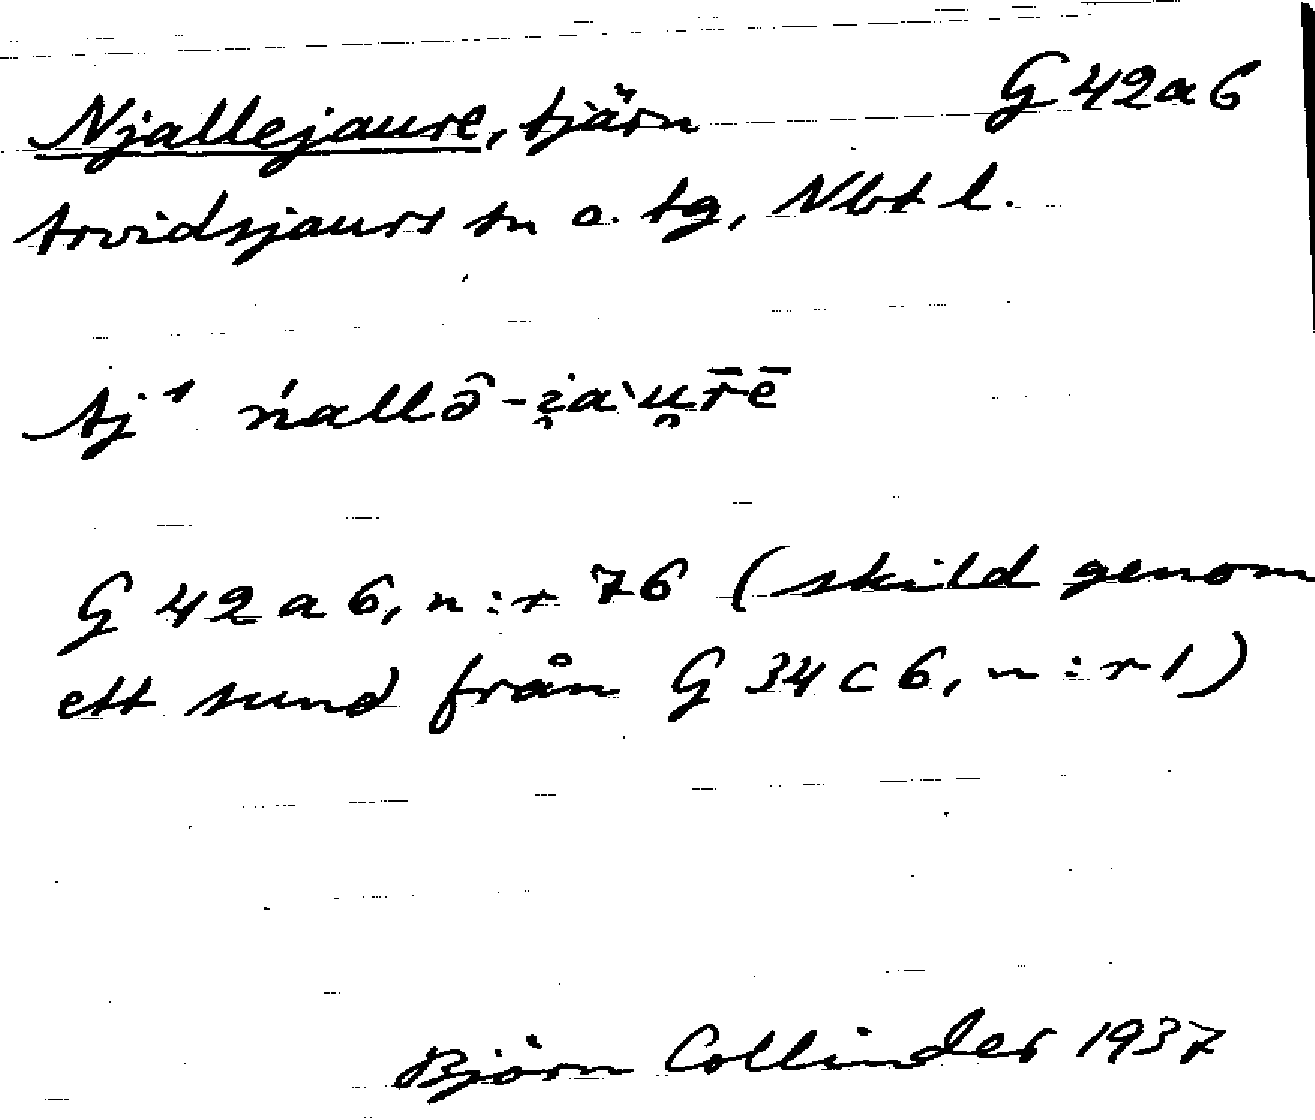 Njallejaure, tjärn G 42a6
Arvidsjaurs sn o. tg, Nbt l.
Aj¹ ńallə̑-i̯a`u̯r̄ē
G 42 a 6, n:r 76 (skild genom
ett sund från G 34 c 6, n:r 1)
Björn Collinder 1937